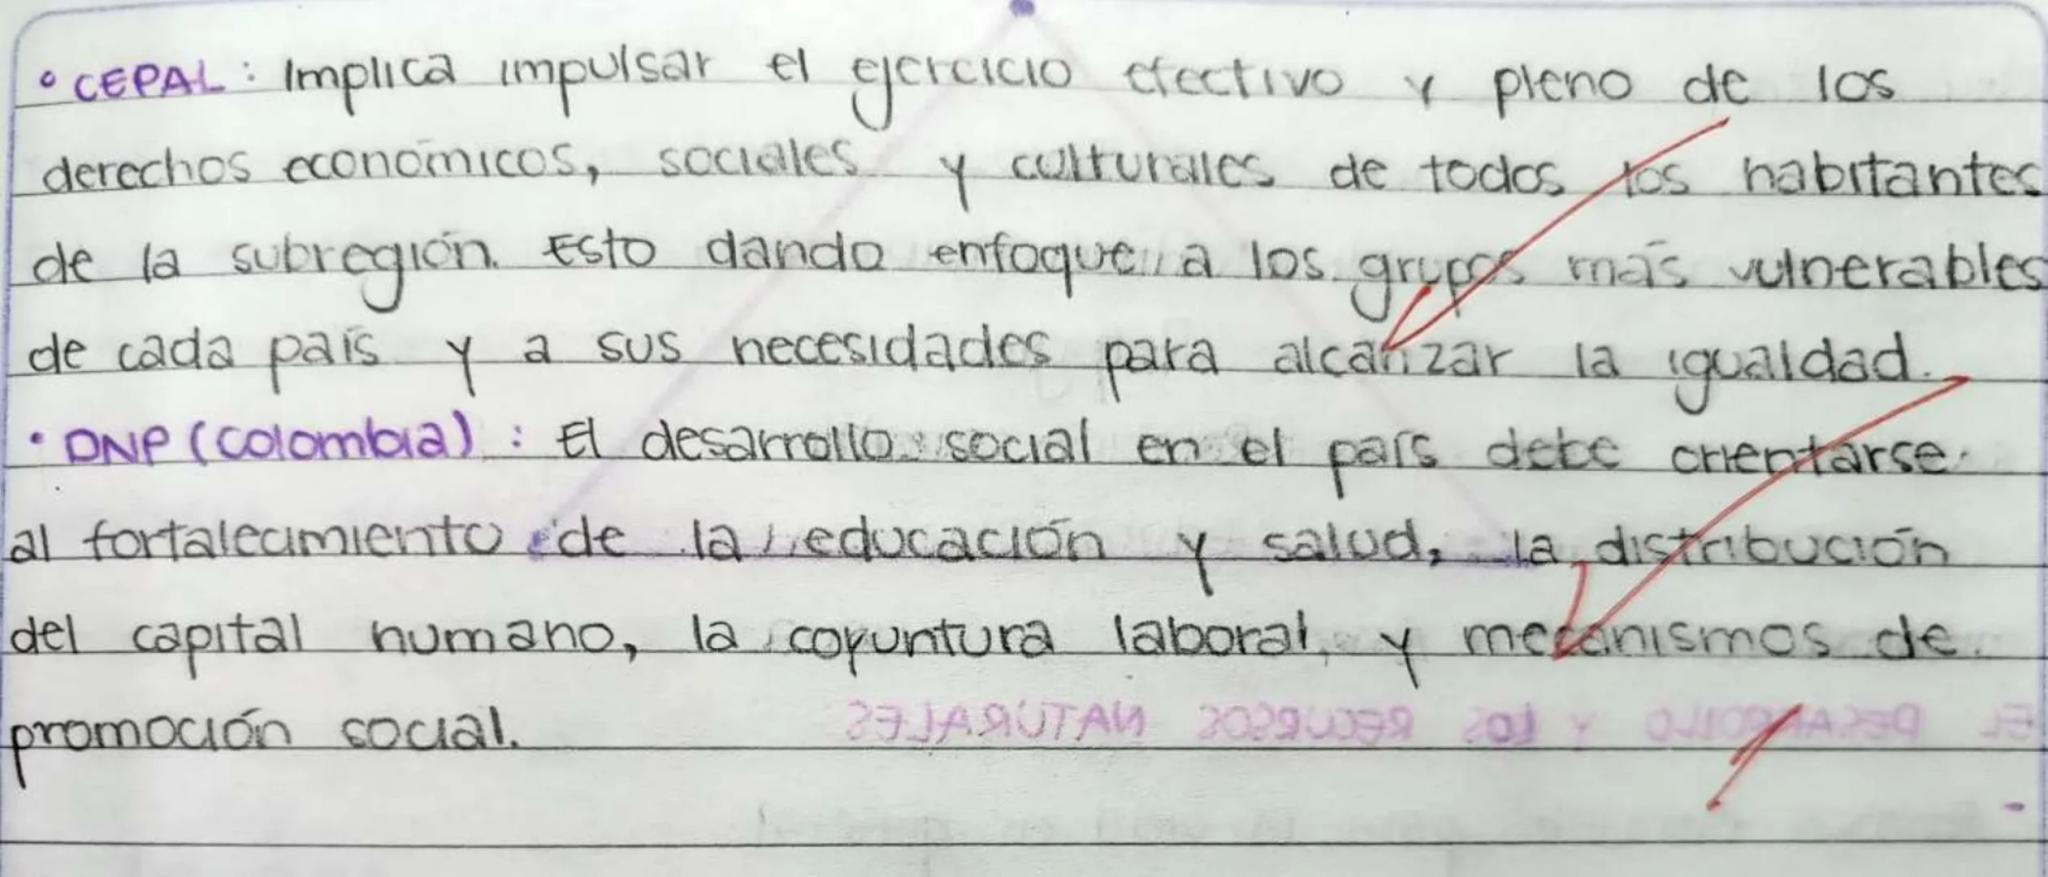 • CEPAL: Implica impulsar el ejercicio efectivo y pleno de los
derechos económicos, sociales y culturales de todos los habitantes
de la subregión. Esto dando enfoque a los grupos más vulnerables
de cada país y a sus necesidades para alcanzar la igualdad.
• DNP (Colombia): El desarrollo social en el país debe orientarse
al fortalecimiento de la educación y salud, la distribución
del capital humano, la coyuntura laboral, y mecanismos de
promoción social.
EL DESARROLLO Y LOS RECURSOS NATURALES